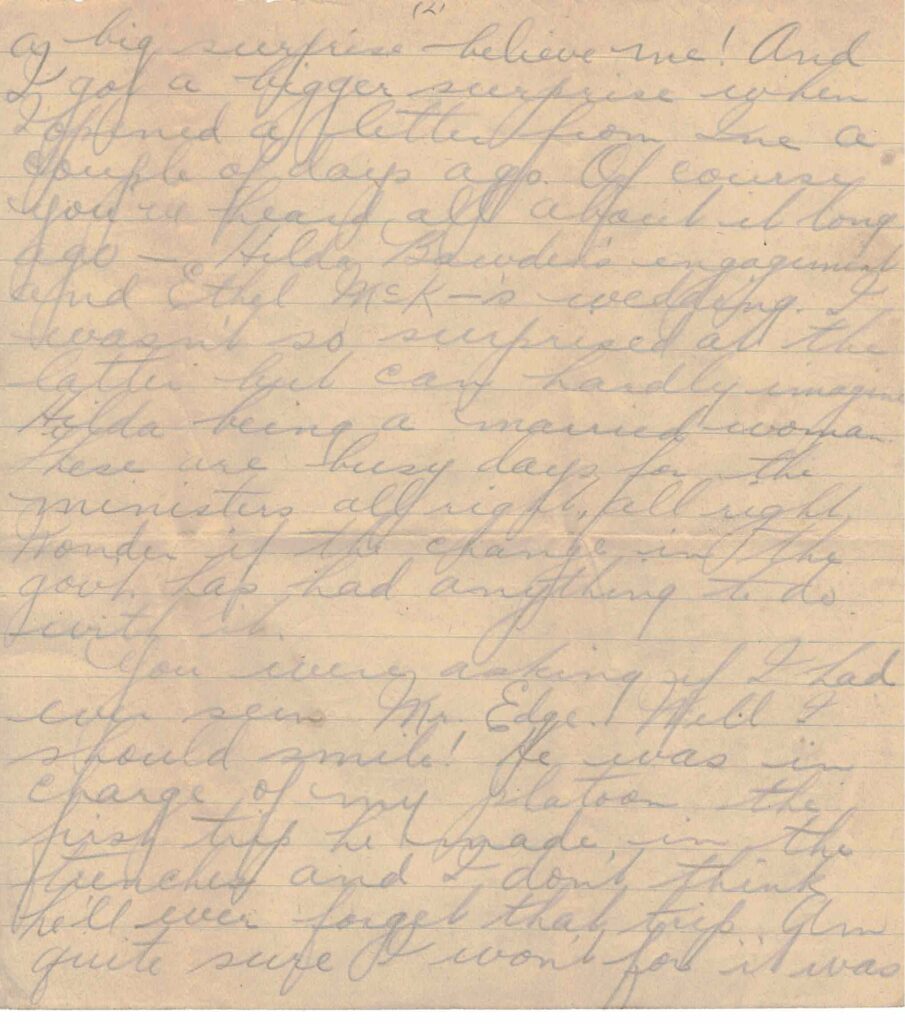 (2)
a big surprise believe me! And
I got a bigger surprise when
I opened a letter from Ine a
couple of days ago. Of course
you've heard all about it long
ago — Hilda Bawden's engagement
and Ethel McK—'s wedding. I
wasn't so surprised at the
latter but can hardly imagine
Hilda being a married woman.
These are busy days for the
ministers all right, all right.
Wonder if the change in the
gov't. has had anything to do
with it.
You were asking if I had
ever seen Mr. Edge! Well I
should smile! He was in
charge of my platoon the
first trip he made in the
trenches and I don't think
he'll ever forget that trip. Am
quite sure I won't for it was